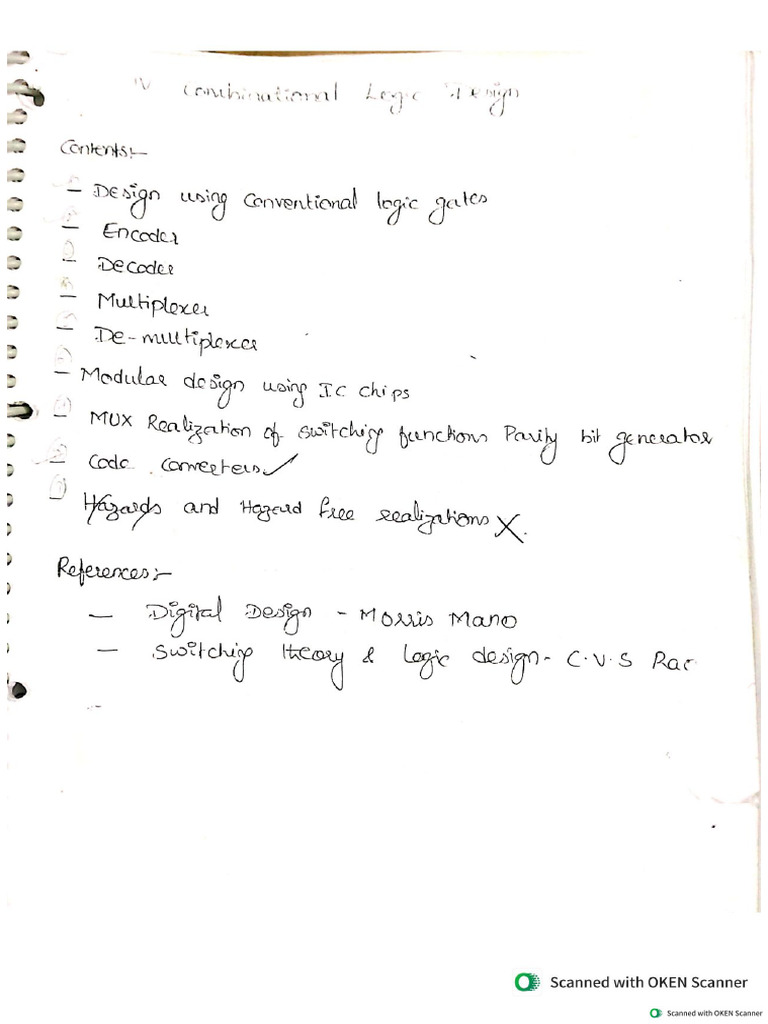 IV Combinational Logic Design
Contents:-
- Design using Conventional logic gates
- Encoder
- Decoder
- Multiplexer
- De-multiplexer
- Modular design using I.C chips
- MUX Realization of switching functions Parity bit generator
- Code converters ✓
Hazards and Hazard free realizations X.
References:-
- Digital Design - Morris Mano
- Switching theory & Logic design - C.V.S Rao
Scanned with OKEN Scanner
Scanned with OKEN Scanner